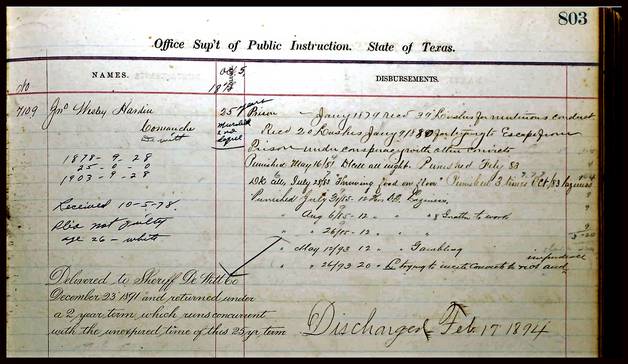 803
Office Sup't of Public Instruction. State of Texas.
No
NAMES.
DISBURSEMENTS.
7109 Jno Wesley Hardin 25 years Prison Jany 1879 Recd 39 Lashes for mutinous conduct
Comanche Murder 2nd Degree Recd 20 Lashes Jany 9 1880 for trying to Escape from
Prison under conspiracy with other convicts
1878-9-28
25-0-0
1903-9-28
Punished May 16/81 D Cell all night. Punished Feby 83
DK all July 28/83 Throwing food on floor Punished 3 times Oct/83 Laziness
Received 10-5-78.
Plea not guilty
age 26-white
Punished July Laziness
Aug 6/85-12 to work
" 26/85-12 " "
" May 12/93 12 " " Gambling
" " 26/93 20 trying to incite convicts to impudence riot and
Delivered to Sheriff De Witt Co
December 23 1891 and returned under
a 2 year term which runs concurrent
with the unexpired time of this 25 yr term
Discharged Feb 17 1894